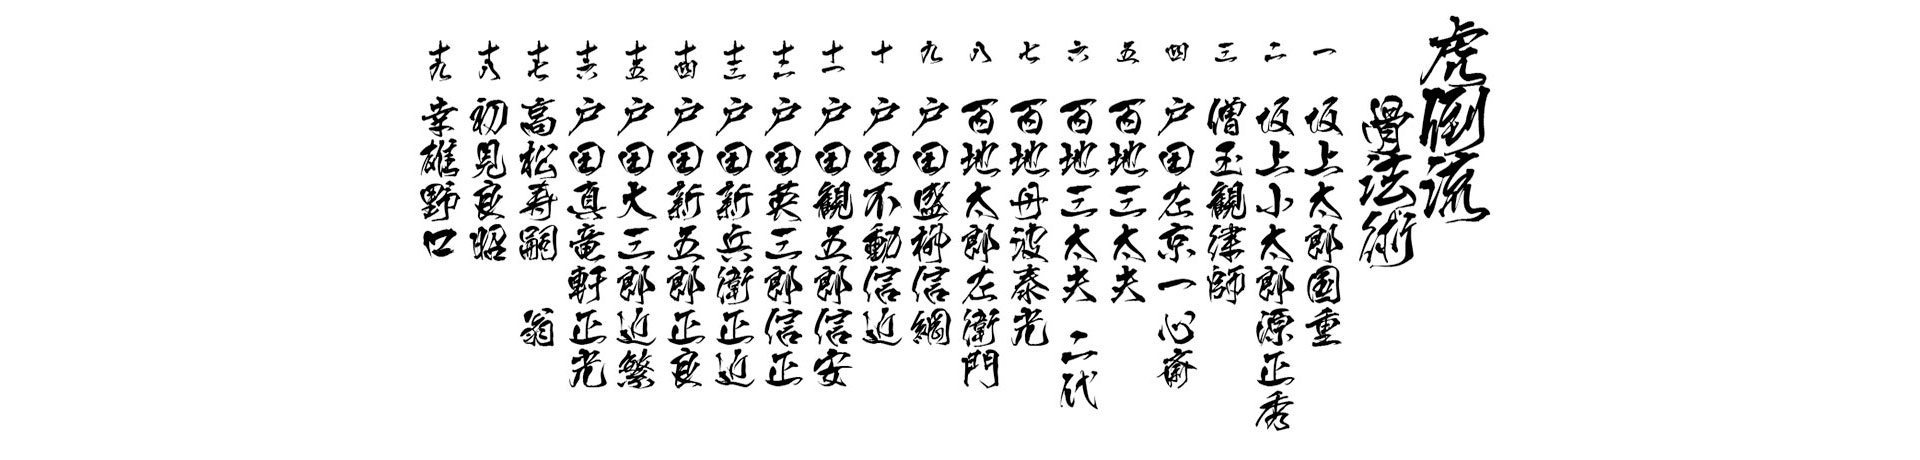 虎倒流
骨法術
一 坂上太郎国重
二 坂上小太郎源正秀
三 僧玉観律師
四 戸田左京一心斎
五 百地三太夫
六 百地三太夫、二代
七 百地丹波泰光
八 百地太郎左衛門
九 戸田盛柳信綱
十 戸田不動信近
十一 戸田観五郎信安
十二 戸田英三郎信正
十三 戸田新兵衛正近
十四 戸田新五郎正良
十五 戸田大三郎近繁
十六 戸田真竜軒正光
十七 高松寿嗣 翁
十八 初見良昭
十九 幸雄野口